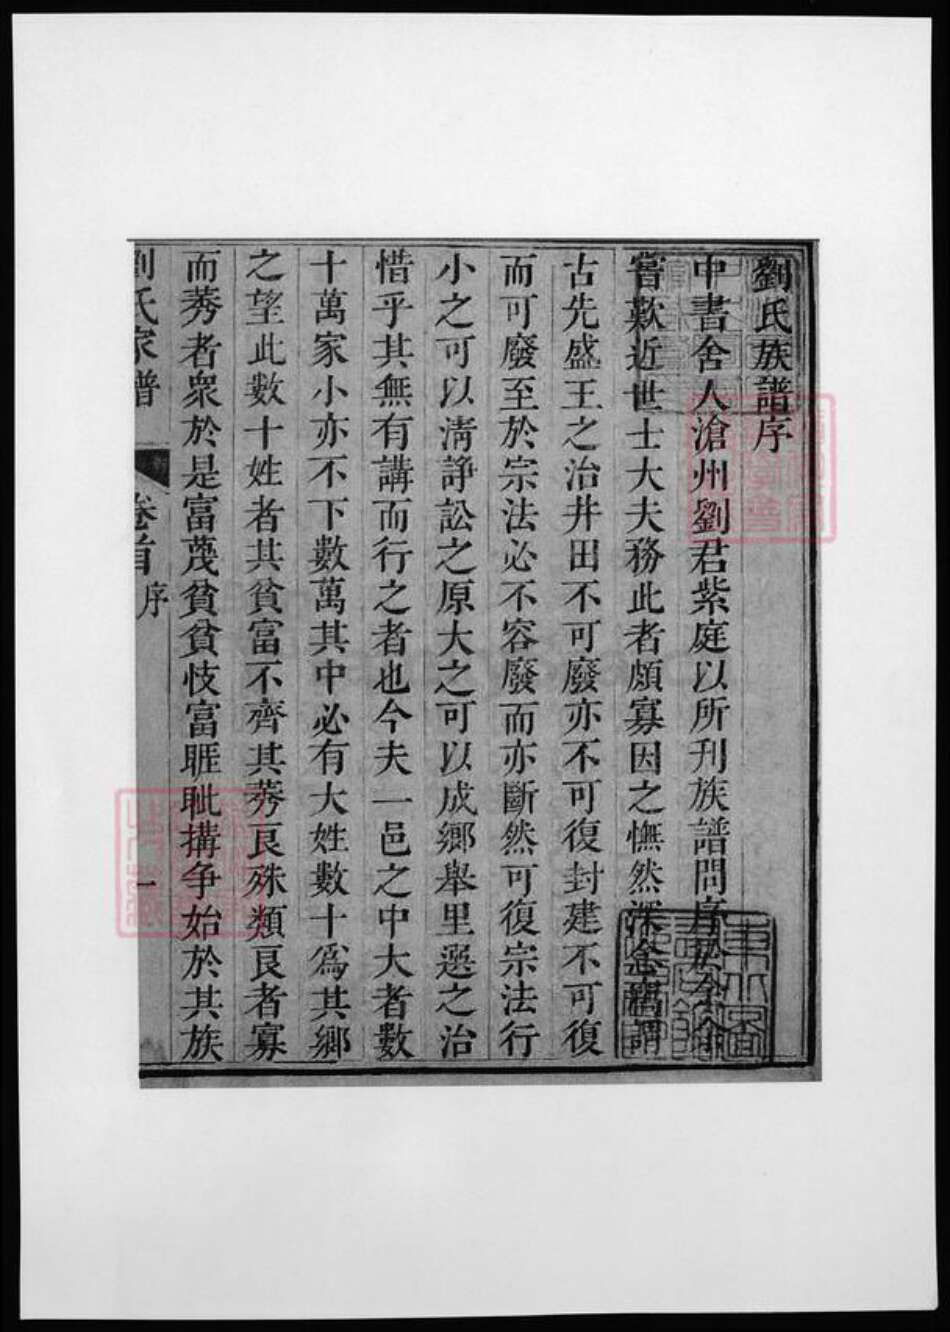 劉氏族譜序
中書舍人滄州劉君紫庭以所刊族譜問序於余余
嘗歎近世士大夫務此者頗寡因之憮然深念竊謂
古先盛王之治井田不可廢亦不可復封建不可復
而可廢至於宗法必不容廢而亦斷然可復宗法行
小之可以清諍訟之原大之可以成鄉舉里選之治
惜乎其無有講而行之者也今夫一邑之中大者數
十萬家小亦不下數萬其中必有大姓數十為其鄉
之望此數十姓者其貧富不齊其莠良殊類良者寡
而莠者衆於是富蔑貧貧忮富睚眦搆争始於其族
劉氏家譜 卷首 序 一